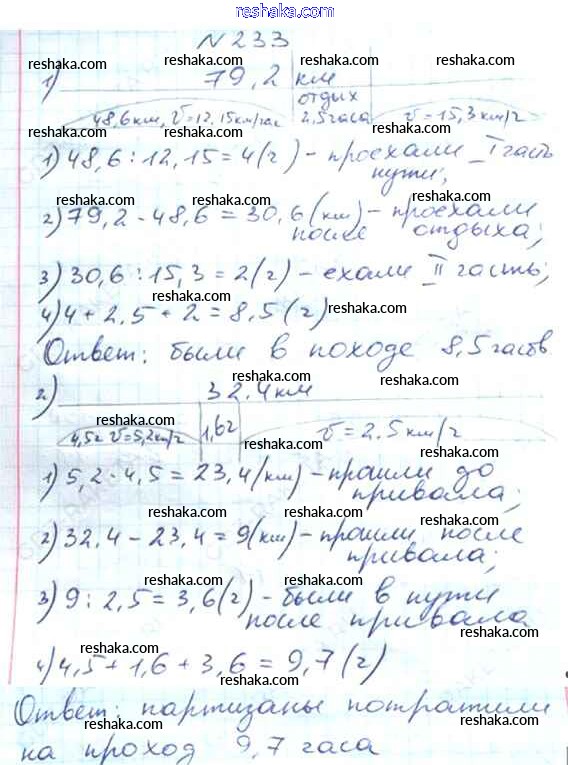 reshaka.com
N 233
reshaka.com reshaka.com reshaka.com
1) 79,2 км
отдых
48,6км, V=12,15км/час 2,5 часа V=15,3км/ч
reshaka.com reshaka.com reshaka.com
1) 48,6 : 12,15 = 4 (ч) - проехали I часть
пути;
reshaka.com reshaka.com reshaka.com
2) 79,2 - 48,6 = 30,6 (км) - проехали
после отдыха;
reshaka.com reshaka.com
3) 30,6 : 15,3 = 2 (ч) - ехали II часть;
reshaka.com
4) 4 + 2,5 + 2 = 8,5 (ч)
reshaka.com reshaka.com
Ответ: были в походе 8,5 часов
reshaka.com reshaka.com
2) 32,4 км
reshaka.com reshaka.com
4,5ч V=5,2км/ч 1,6ч V=2,5км/ч
reshaka.com reshaka.com
1) 5,2 · 4,5 = 23,4 (км) - прошли до
привала;
reshaka.com reshaka.com
2) 32,4 - 23,4 = 9 (км) - прошли после
привала;
reshaka.com reshaka.com
3) 9 : 2,5 = 3,6 (ч) - были в пути
после привала
reshaka.com reshaka.com
4) 4,5 + 1,6 + 3,6 = 9,7 (ч)
reshaka.com reshaka.com
Ответ: партизаны потратили
reshaka.com reshaka.com
на проход 9,7 часа
reshaka.com reshaka.com